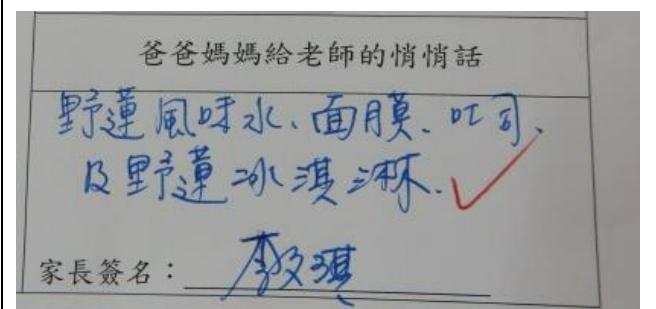 爸爸媽媽給老師的悄悄話
野蓮風味水、面膜、吐司、
及野蓮冰淇淋.
家長簽名：